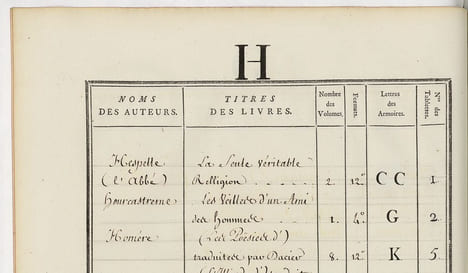 H
NOMS DES AUTEURS.
TITRES DES LIVRES.
Nombre des Volumes.
Formats.
Lettres des Armoires.
Nos des Tablettes.
Hespelle La Seule Véritable
(l'Abbé) Relligion . . . . . 2. 12° CC 1
Hourcastreme Les Veilles d'un Ami
des hommes . . . . 1. 4° G 2
Homére (Les Poësies d')
traduites par Dacier 8. 12° K 5